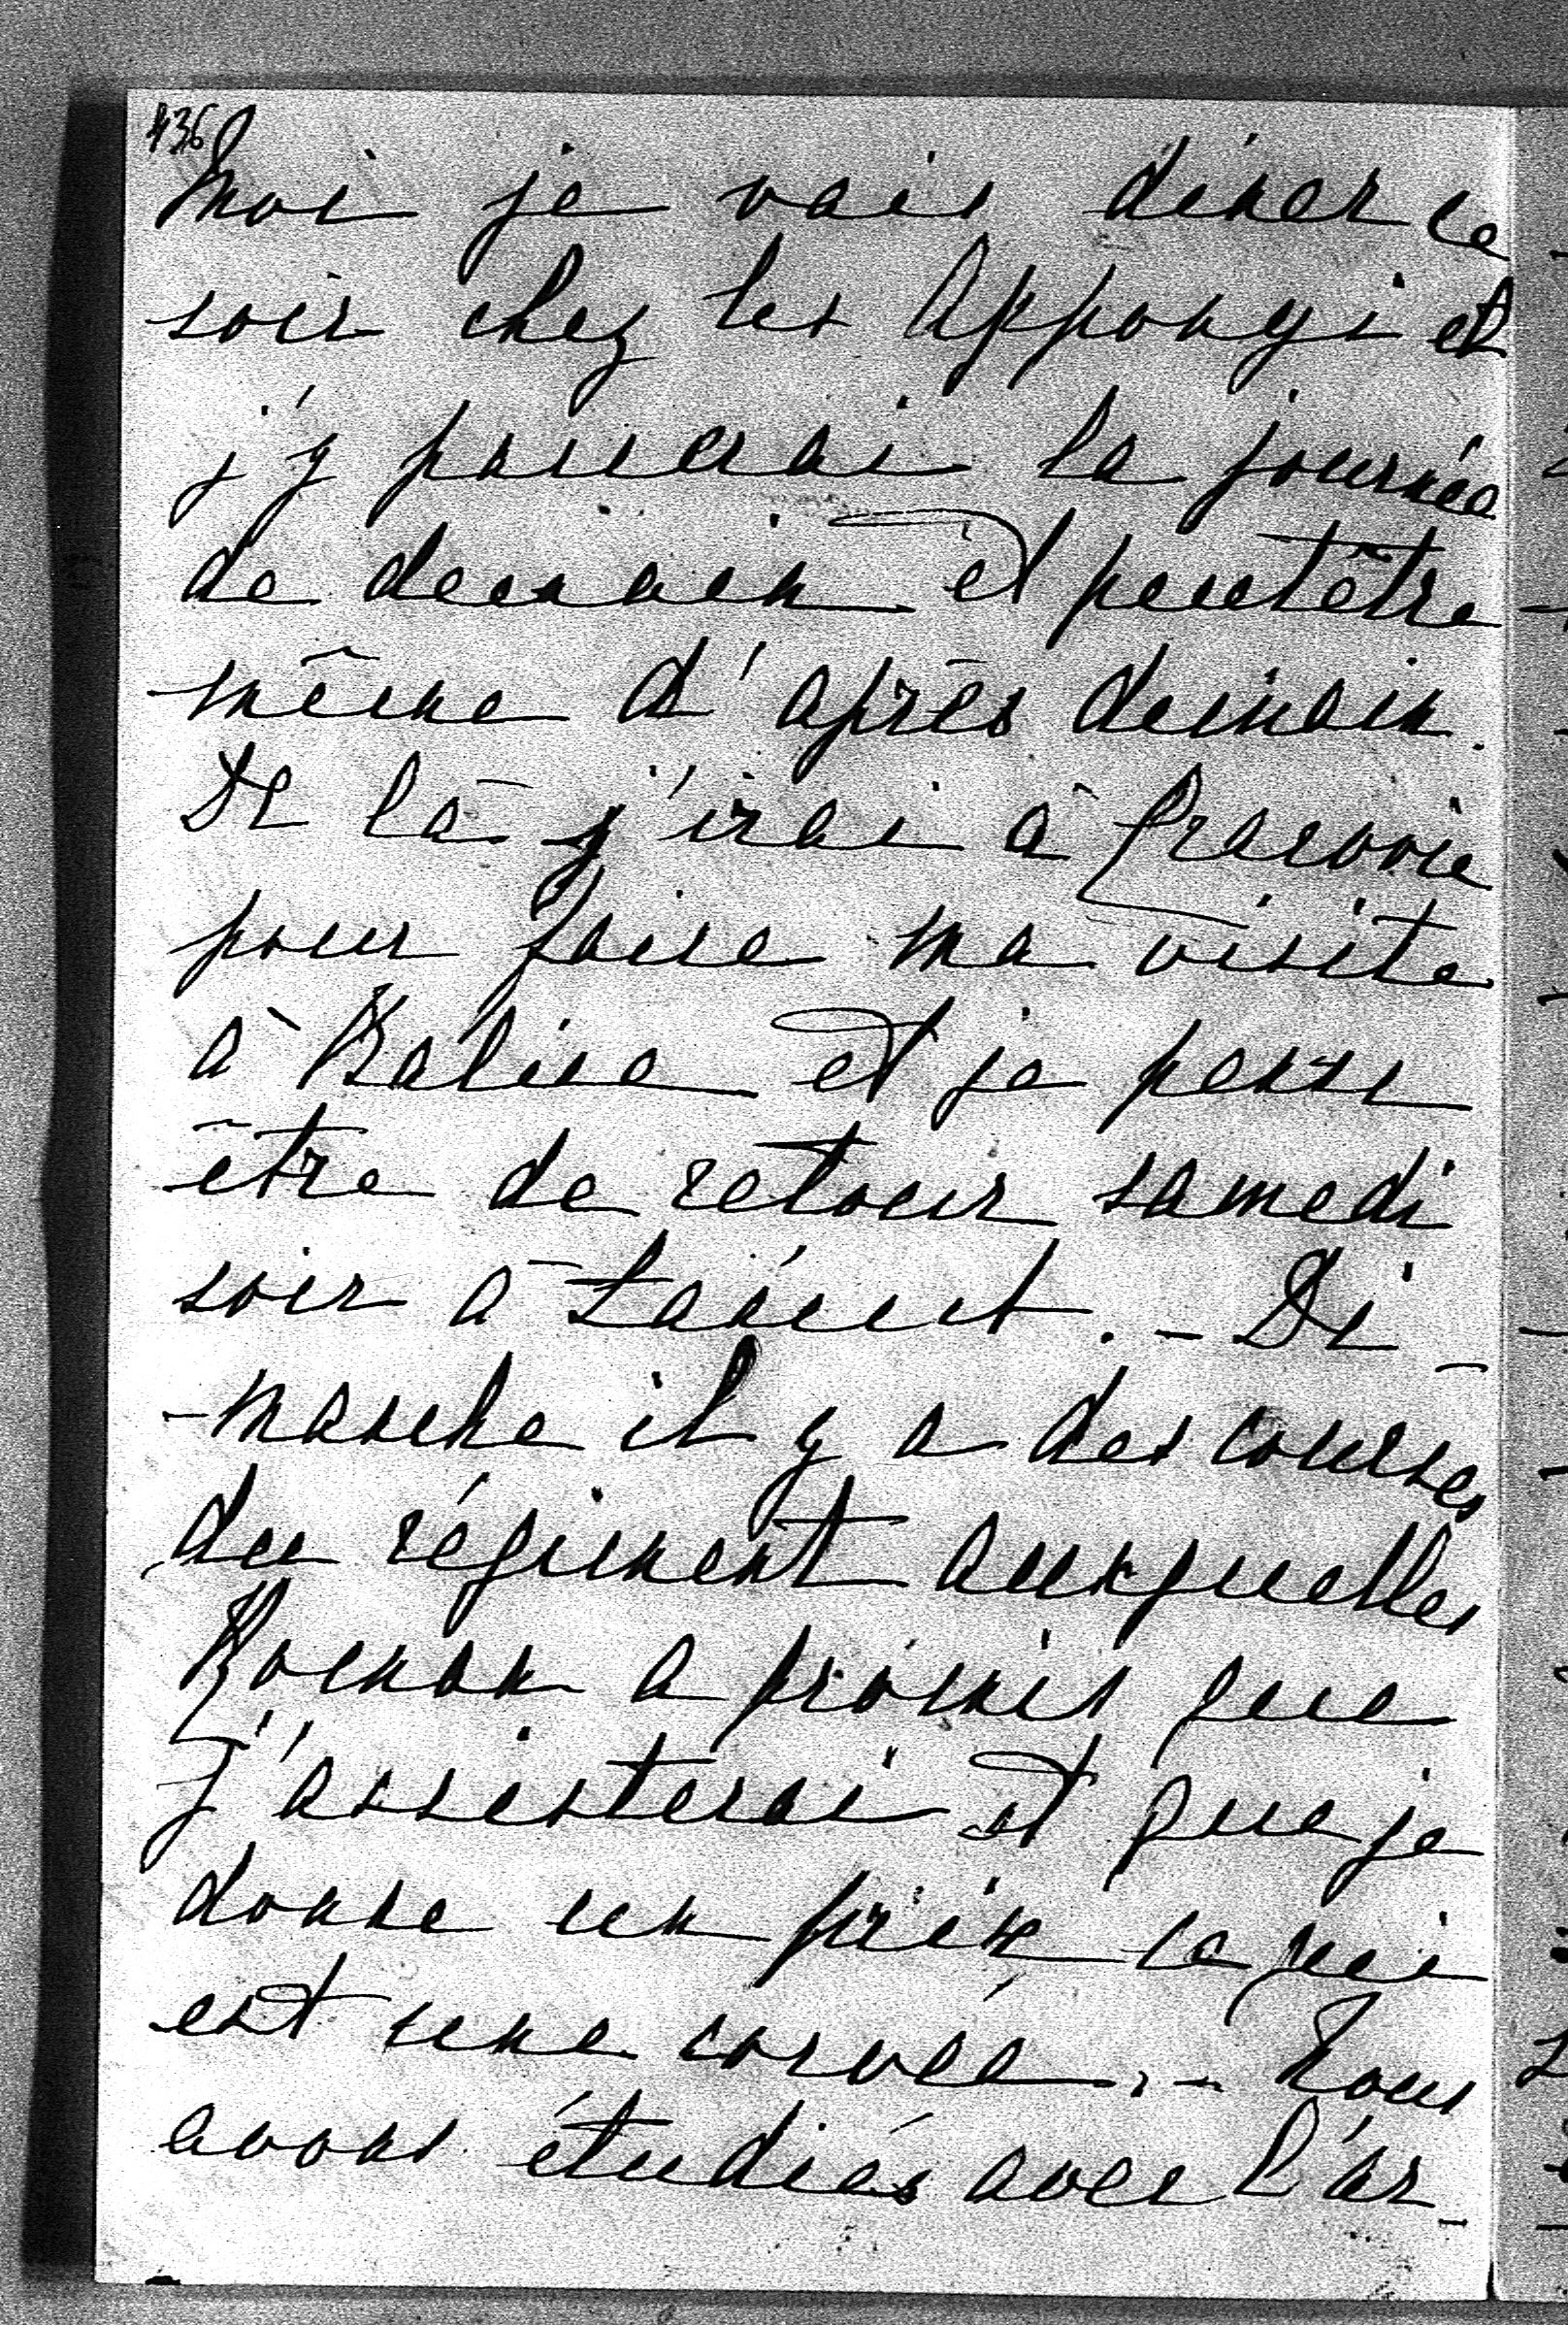 436
moi je vais diner ce
soir chez les Apponyi et
j'y passerai la journée
de demain et peutêtre
même d'après demain.
De là j'irai à Cracovie
pour faire ma visite
à Kalina et je pense
être de retour samedi
soir à Łańcut. - Di-
-manche il y a des courses
du régiment auxquelles
Roman a promis que
j'assisterai et que je
donne un prix ce qui
est une corvée. - Nous
avons étudiés avec l'ar-